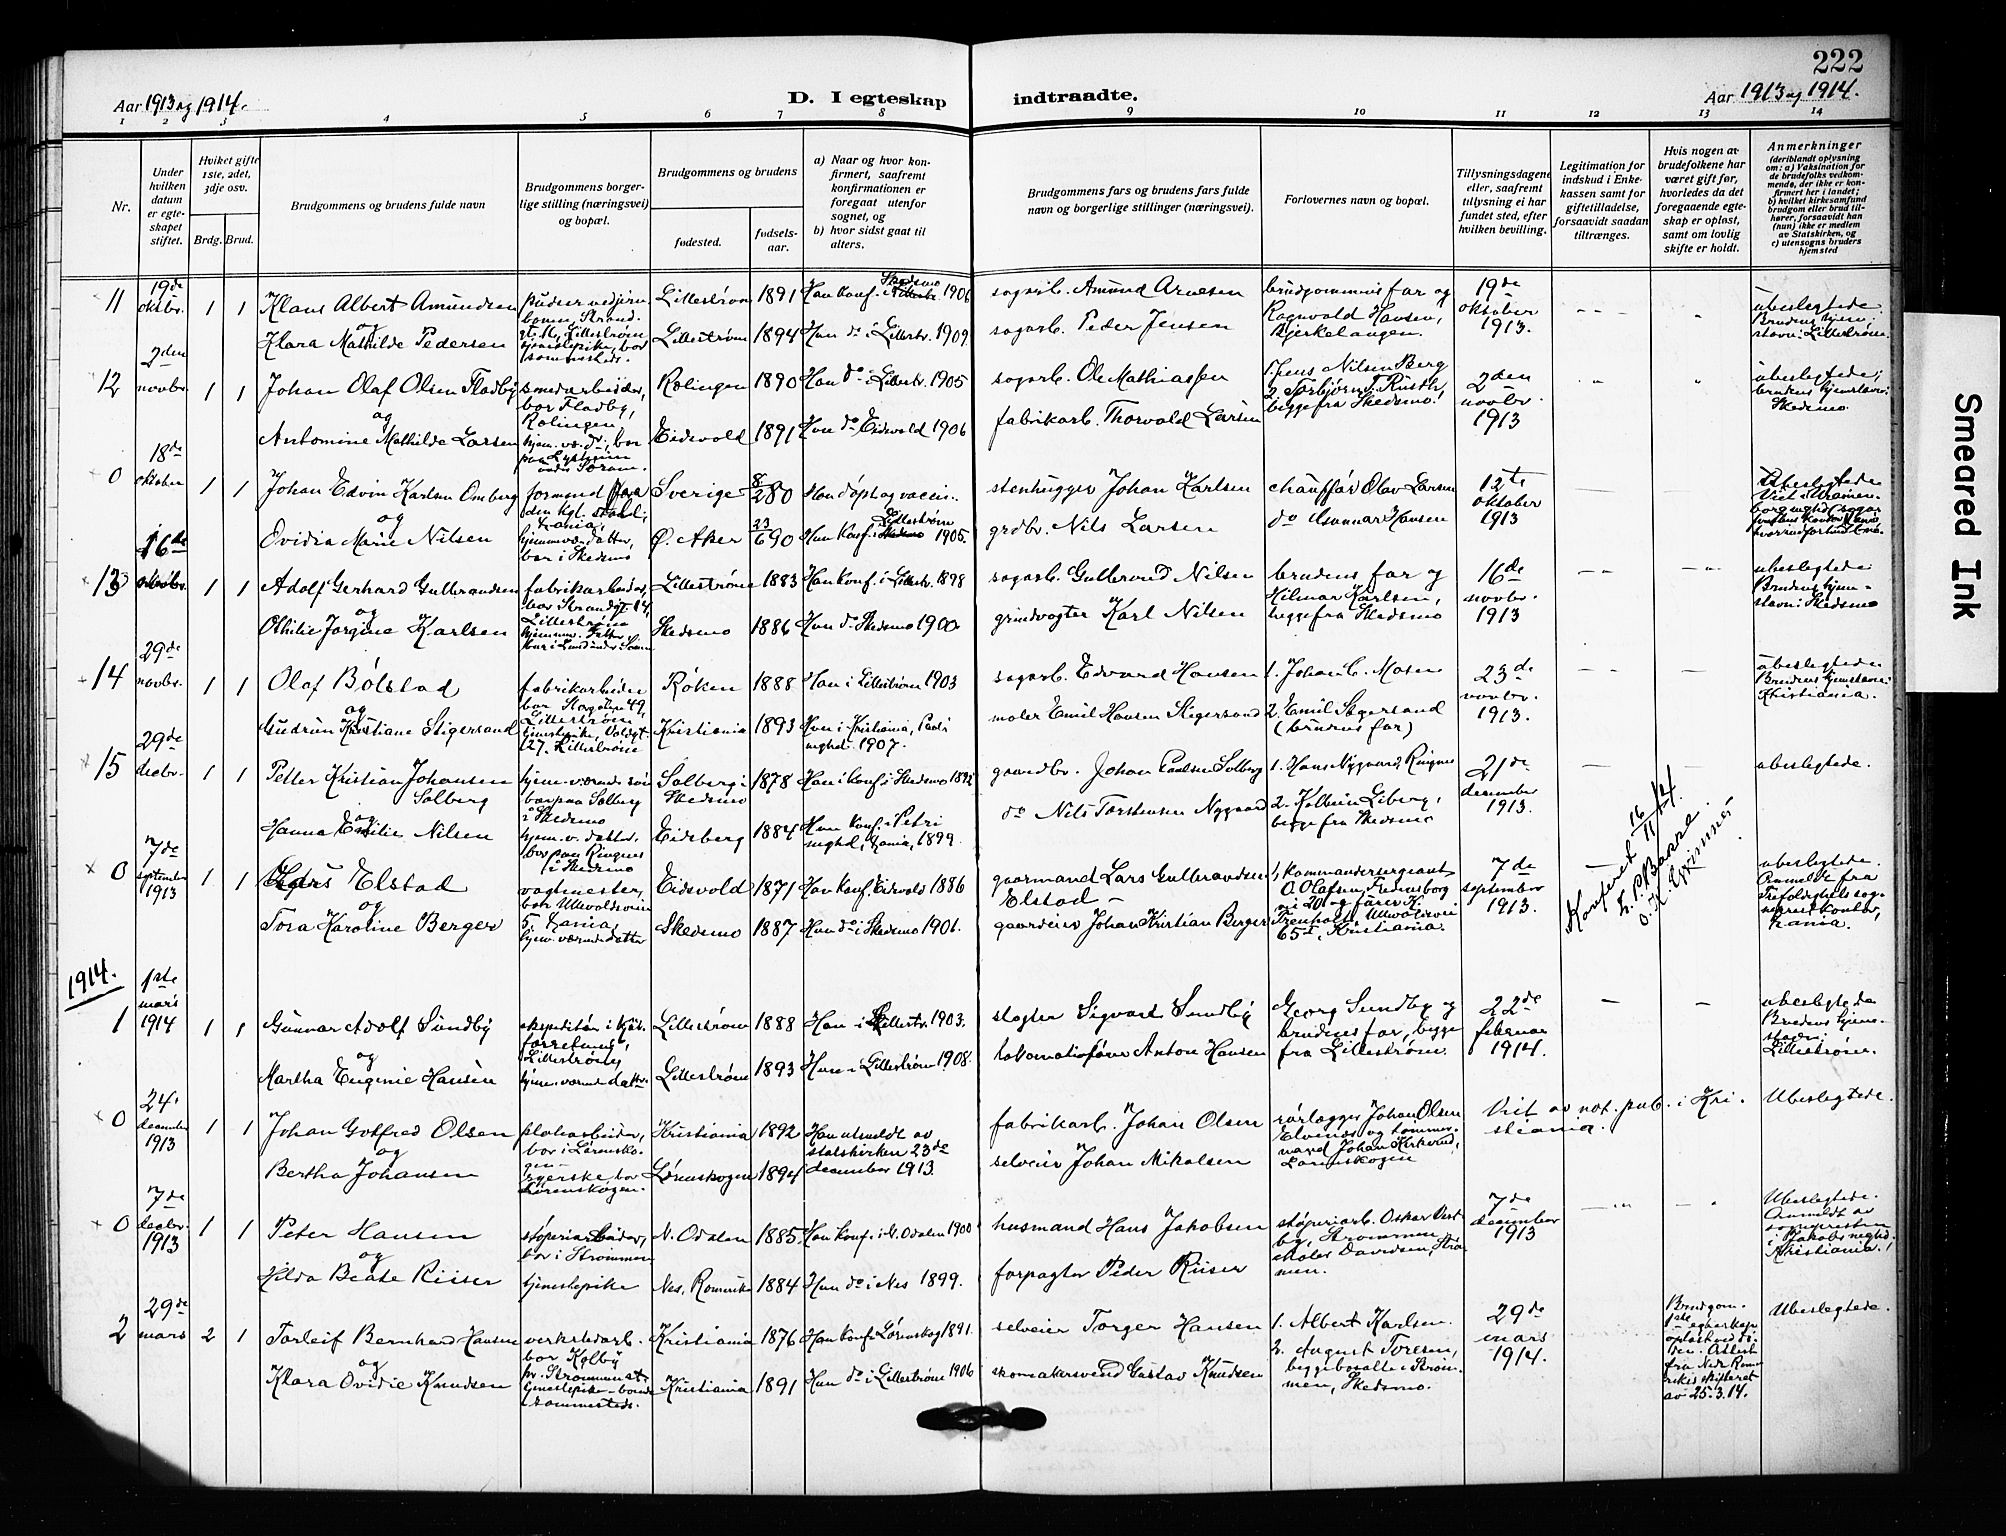 222
Aar 1913 og 1914.
D. I egteskap
indtraadte.
Aar 1913 og 1914.
1 2 3 4 5 6 7 8 9 10 11 12 13 14
Nr.
Under hvilken datum er egteskapet stiftet.
Hviket gifte 1ste, 2det, 3dje osv.
Brdg. Brud.
Brudgommens og brudens fulde navn
Brudgommens borgerlige stilling (næringsvei) og bopæl.
Brudgommens og brudens
fødested.
fødselsaar.
a) Naar og hvor konfirmert, saafremt konfirmationen er foregaat utenfor sognet, og
b) hvor sidst gaat til alters.
Brudgommens fars og brudens fars fulde navn og borgerlige stillinger (næringsvei).
Forlovernes navn og bopæl.
Tillysningsdagene eller, saafremt tillysning ei har fundet sted, efter hvilken bevilling.
Legitimation for indskud i Enkekassen samt for giftetilladelse, forsaavidt saadan tiltrænges.
Hvis nogen av brudefolkene har været gift før, hvorledes da det foregaaende egteskap er opløst, samt om lovlig skifte er holdt.
Anmerkninger
(deriblandt oplysning om: a) Vaksination for de brudefolks vedkommende, der ikke er konfirmert her i landet;
b) hvilket kirkesamfund brudgom eller brud tilhører, forsaavidt han (hun) ikke er medlem av Statskirken, og
c) utensogns bruders hjemsted
11 19de oktbr. 1 1 Klaus Albert Amundsen Lillestrøm 1891 Han konf. i Skedsmo 1906 sagarb. Amund Arnesen brudgommens far og Ragnvald Hansen, Bjerkelangen. 19de oktober 1913. ubeslegtede. Brudens hjemstavn: Lillestrøm.
og
Klara Mathilde Pedersen Lillestrøm 1894 Hun do i Lillestr. 1909 sagarb. Peder Jensen
12 2den novbr. 1 1 Johan Olaf Olsen Fladby smedarbeider, bor Fladby, Rolingen, Rolingen 1890 Han do i Lillestr. 1905 sagarb. Ole Mathiassen 1. Jens Nilsen Berg 2. Torbjørn T. Rusth, begge fra Skedsmo. 2den novbr. 1913 ubeslegtede; brudens hjemstavn: Skedsmo
og
Antomine Mathilde Larsen Eidsvold 1891 Hun do Eidsvold 1906 fabrikarb. Thorvald Larsen
0 18de oktober 1 1 Johan Edvin Karlsen Omberg Sverige 8/2 80 Han døpt og vaccin. stenhugger Johan Karlsen chauffør Olav Larsen 12te oktober 1913
og
Ovidia Marie Nilsen hjemmev. datter, bor i Skedsmo Ø. Aker 23/6 90 Hun konf. i Lillestrøm 1905. grdbr. Nils Larsen do Gunnar Hansen
13 16de 1 1 Adolf Gerhard Gulbrandsen fabrikarbeider, bor Strandgt. 14, Lillestrøm Lillestrøm 1883 Han konf. i Lillestr. 1898 sagarb. Gulbrand Nilsen brudens far og Hilmar Karlsen, begge fra Skedsmo 16de novbr. 1913 ubeslegtede Brudens hjemstavn: Skedsmo
og
Othilie Jorgine Karlsen Skedsmo 1886 Hun do Skedsmo 1900. grindvogter Karl Nilsen
14 29de novbr. 1 1 Olaf Bölstad fabrikarbeider bor Storgaten 49, Lillestrøm Røken 1888 Han i Lillestrøm 1903 sagarb. Edvard Hansen 1. Johan C. Mosen 23de novbr. 1913. ubeslegtede Brudens hjemstavn: Kristiania.
og
Gudrun Kristiane Stigersand tjenestepike, Voldgt. 27, Lillestrøm Kristiania 1893 Hun i Kristiania, Pauls meghd. 1907. maler Emil Hansen Stigersand 2. Emil Stigersand (brudens far)
15 29de decbr. 1 1 Petter Kristian Johansen Solberg hjem. værende søn bor paa Solberg i Skedsmo Solberg i Skedsmo 1878 Han i konf. i Skedsmo 1892 gaardbr. Johan Paulsen Solberg 1. Hans Nygaard, Ringnes 21de december 1913. ubeslegtede.
og
Hanna Emilie Nilsen hjem. v. datter, bor paa Ringnes i Skedsmo Eidsberg 1884 Hun konf. i Petri meghd., Xania, 1899. do Nils Torstensen Nygaard 2. Kolbein Liberg, begge fra Skedsmo
0 7de september 1913 1 1 Elstad vagtmester, bor Ullevoldsveien 5, Xania, Eidsvold 1871 Han konf. Eidsvold 1886 gaarmand Lars Gulbrandsen Elstad 1. kommandersergeant O. Olafsen, 7de september 1913. ubeslegtede. Anmeldt fra Trefoldigheds sogneprestkontor, Xania.
og
Tora Karoline Berger hjem. værende datter Skedsmo 1887 Hun do i Skedsmo 1901. gaardeier Johan Kristian Berger Ullevoldsvei 65, Kristiania.
Konferert 16/11 14.
1914.
1 1ste mars 1914 1 1 Gunnar Adolf Sundby ekspeditør i kjøt. forretning, Lillestrøm, Lillestrøm 1888 Han i Lillestr. 1903. slagter Sigvart Sundby Georg Sundby og brudens far, begge fra Lillestrøm. 22de februar 1914. ubeslegtede Brudens hjemstavn: Lillestrøm.
og
Martha Eugenie Hansen hjem. værende datter Lillestrøm 1893 Hun i Lillestrøm 1908. lokomotivfører Anton Hansen
0 24. december 1913 1 1 Johan Gotfred Olsen platearbeider, bor i Lørenskogen Kristiania 1892 Han utmeldt av statskirken 23de december 1913. fabrikarb. Johan Olsen rørlægger Johan Olsen Viet av not. pub. i Kristiania. Ubeslegtede.
og
Bertha Johansen syerske, bor Lørenskogen. Lørenskogen 1894 selveier Johan Mikalsen
0 7de decbr. 1913 1 1 Peter Hansen støperiarbeider, bor i Strømmen N. Odalen 1885 Han konf. i N. Odalen 1900 husmand Hans Jakobsen støperiarb. Oskar 7de december 1913 Ubeslegtede. Anmeldt av sognepresten i Jakobs meghd., Kristiania.
og
Hilda Beate Riiser tjenestepike Nes, Romerike 1884 Hun do i Nes 1899. forpagter Peder Riiser
2 29de mars 2 1 Torleif Bernhard Hansen verkstedarb. bor Kolby pr. Strømmen st. Kristiania 1876 Han konf. i Lørenskog 1891. selveier Torger Hansen 1. Albert Karlsen. 29de mars 1914. Brudgom. 1ste egteskap opløst ved døden. Attest fra Nedr. Romerikes skifteret av 25.3.14. Ubeslegtede.
og
Klara Ovidie Knudsen tjenestepike - bor sammesteds. Kristiania 1891 Hun do i Lillestrøm 1906 skomakersvend Gustav Knudsen 2. August Toresen, begge bosatte i Strømmen, Skedsmo.
Smeared Ink